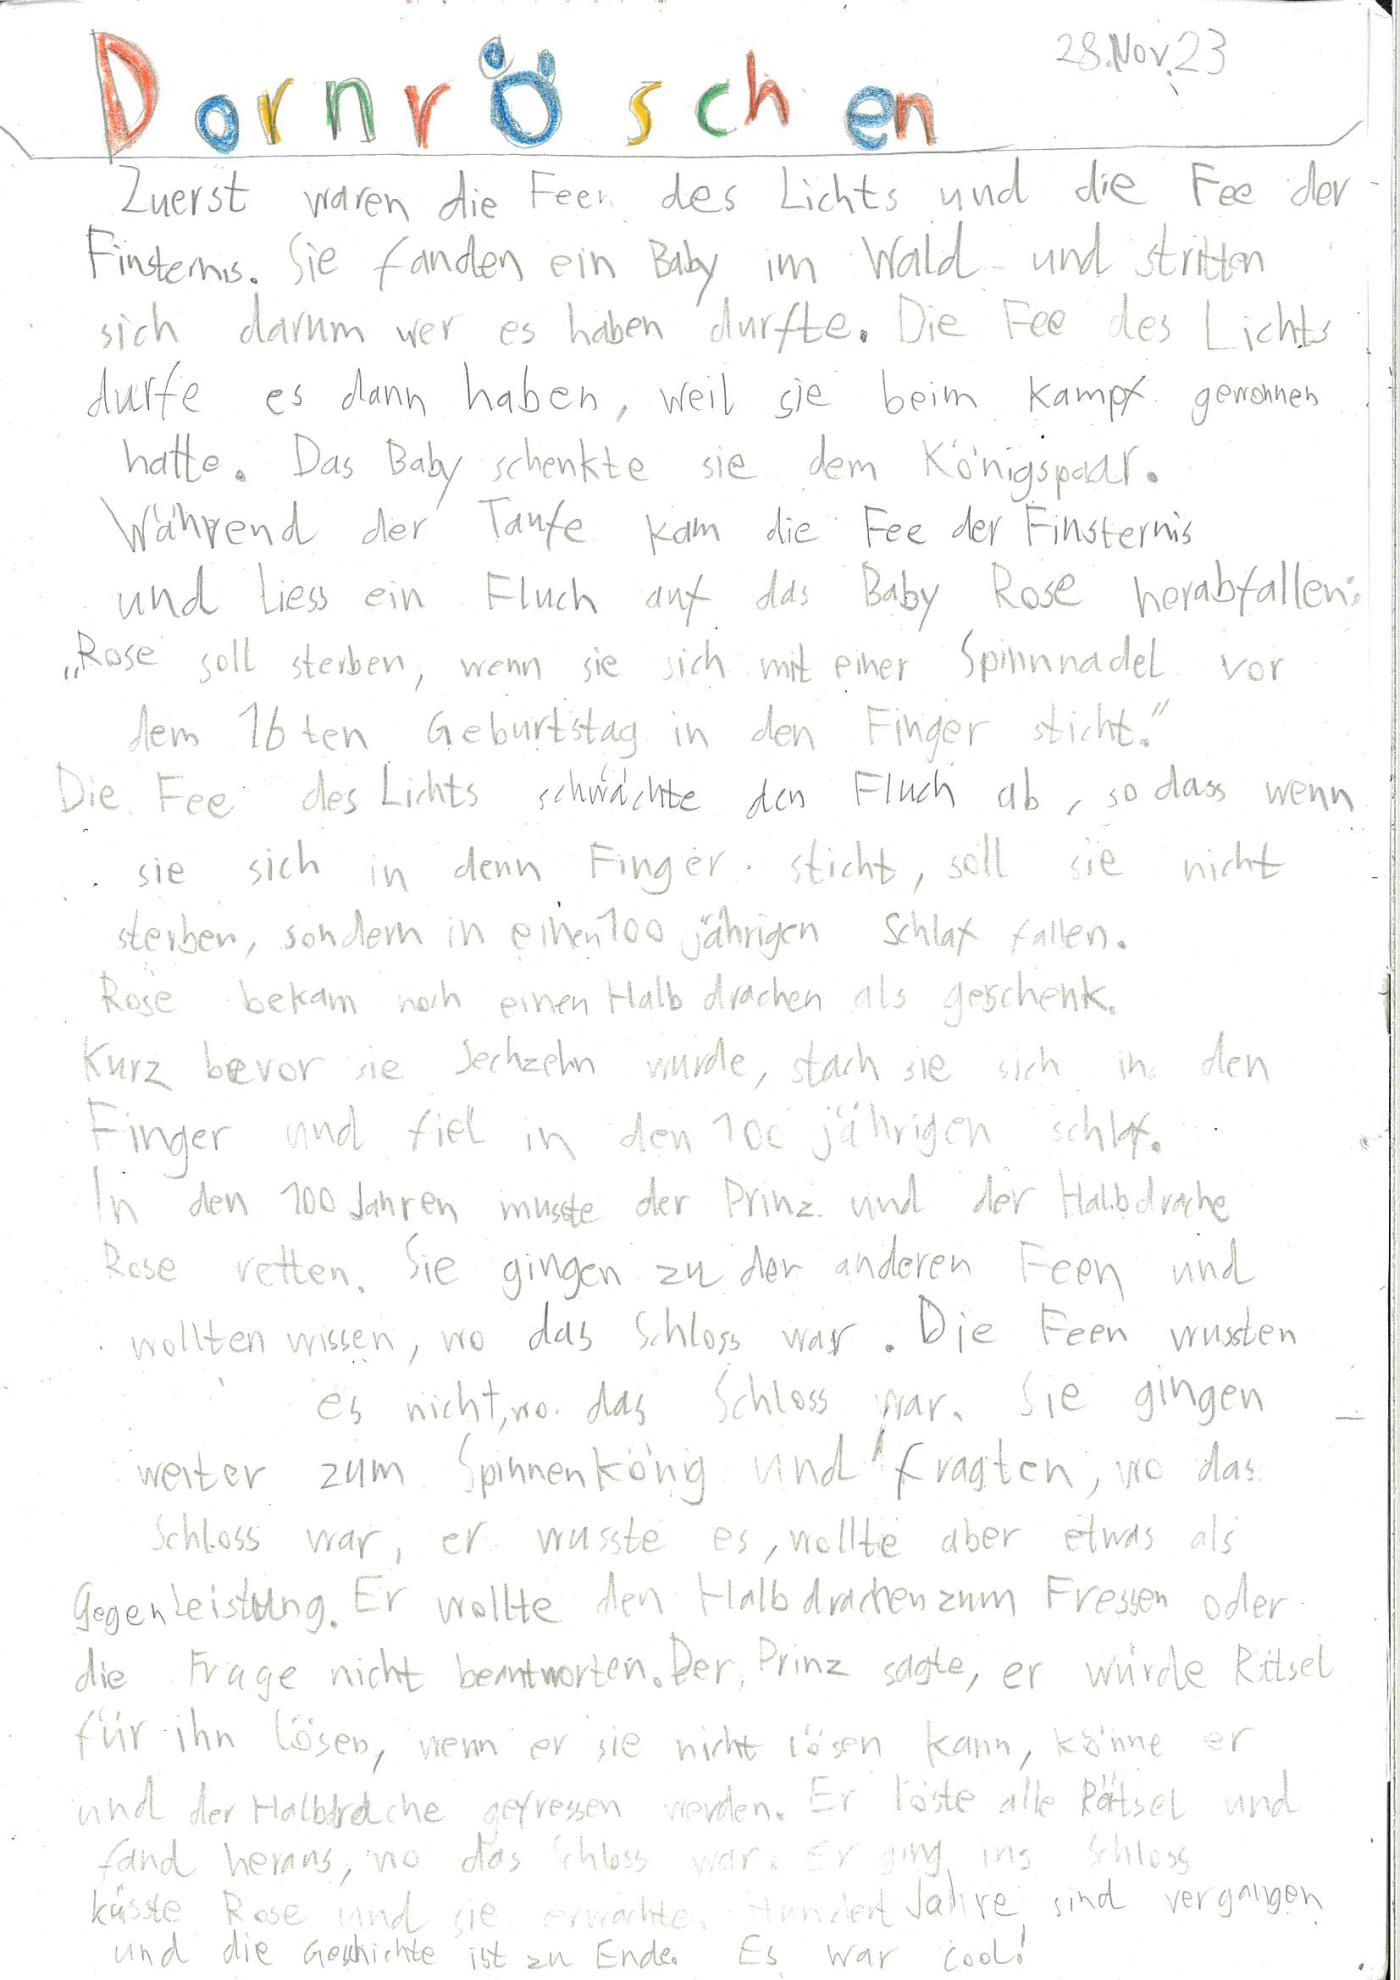 Dornröschen
28.Nov.23
Zuerst waren die Feen des Lichts und die Fee der
Finsternis. Sie fanden ein Baby im Wald und stritten
sich darum wer es haben durfte. Die Fee des Lichts
durfe es dann haben, weil sie beim kampf gewonnen
hatte. Das Baby schenkte sie dem Königspaar.
Während der Taufe kam die Fee der Finsternis
und liess ein Fluch auf das Baby Rose herabfallen:
„Rose soll sterben, wenn sie sich mit einer Spinnnadel vor
dem 16ten Geburtstag in den Finger sticht."
Die Fee des Lichts schwächte den Fluch ab, so dass wenn
sie sich in denn Finger sticht, soll sie nicht
sterben, sondern in einen 100 jährigen Schlaf fallen.
Rose bekam noch einen Halb drachen als geschenk.
Kurz bevor sie Sechzehn wurde, stach sie sich in den
Finger und fiel in den 100 jährigen schlaf.
In den 100 Jahren musste der Prinz und der Halbdrache
Rose retten. Sie gingen zu der anderen Feen und
wollten wissen, wo das Schloss war. Die Feen wussten
es nicht, wo das Schloss war. Sie gingen
weiter zum Spinnenkönig und fragten, wo das
Schloss war, er wusste es, wollte aber etwas als
Gegenleistung. Er wollte den Halb drachen zum Fressen oder
die Frage nicht beantworten. Der Prinz sagte, er würde Rätsel
für ihn lösen, wenn er sie nicht lösen kann, könne er
und der Halbdrache gefressen werden. Er löste alle Rätsel und
fand heraus, wo das Schloss war. Er ging ins Schloss
küsste Rose und sie erwachte. Hundert Jahre sind vergangen
und die Geschichte ist zu Ende. Es war cool!